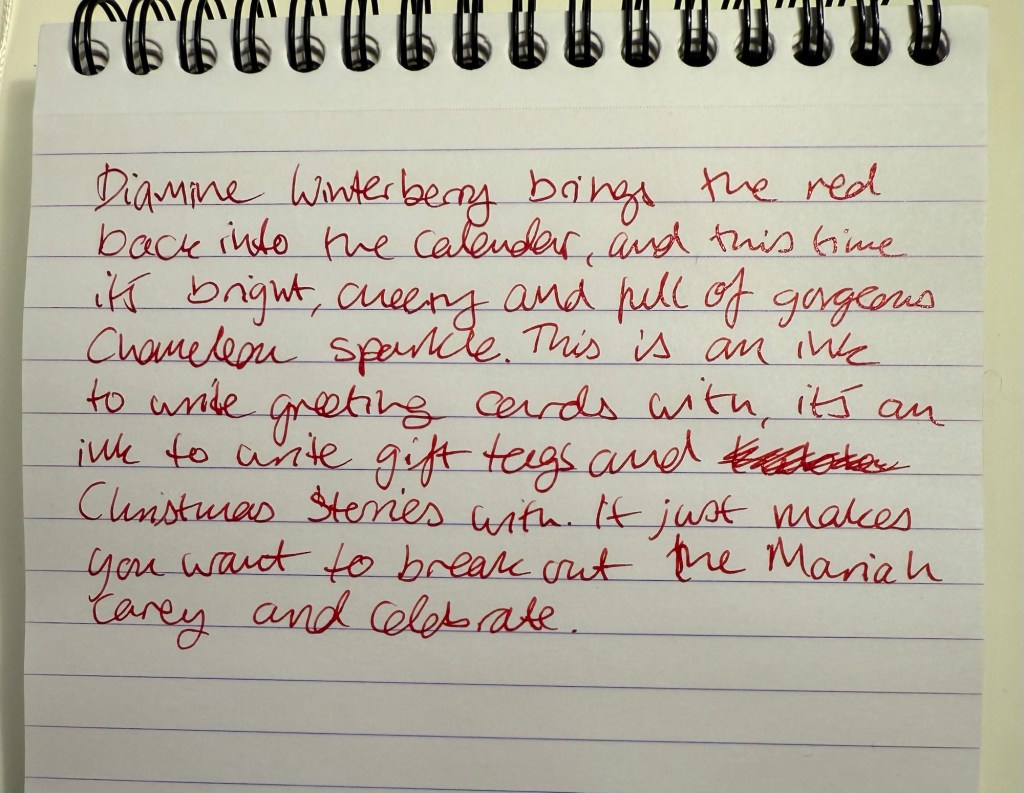 Diamine Winterberry brings the red
back into the calendar, and this time
it's bright, cheery and full of gorgeous
Chameleon sparkle. This is an ink
to write greeting cards with, it's an
ink to write gift tags and
Christmas Stories with. It just makes
you want to break out the Mariah
Carey and celebrate.